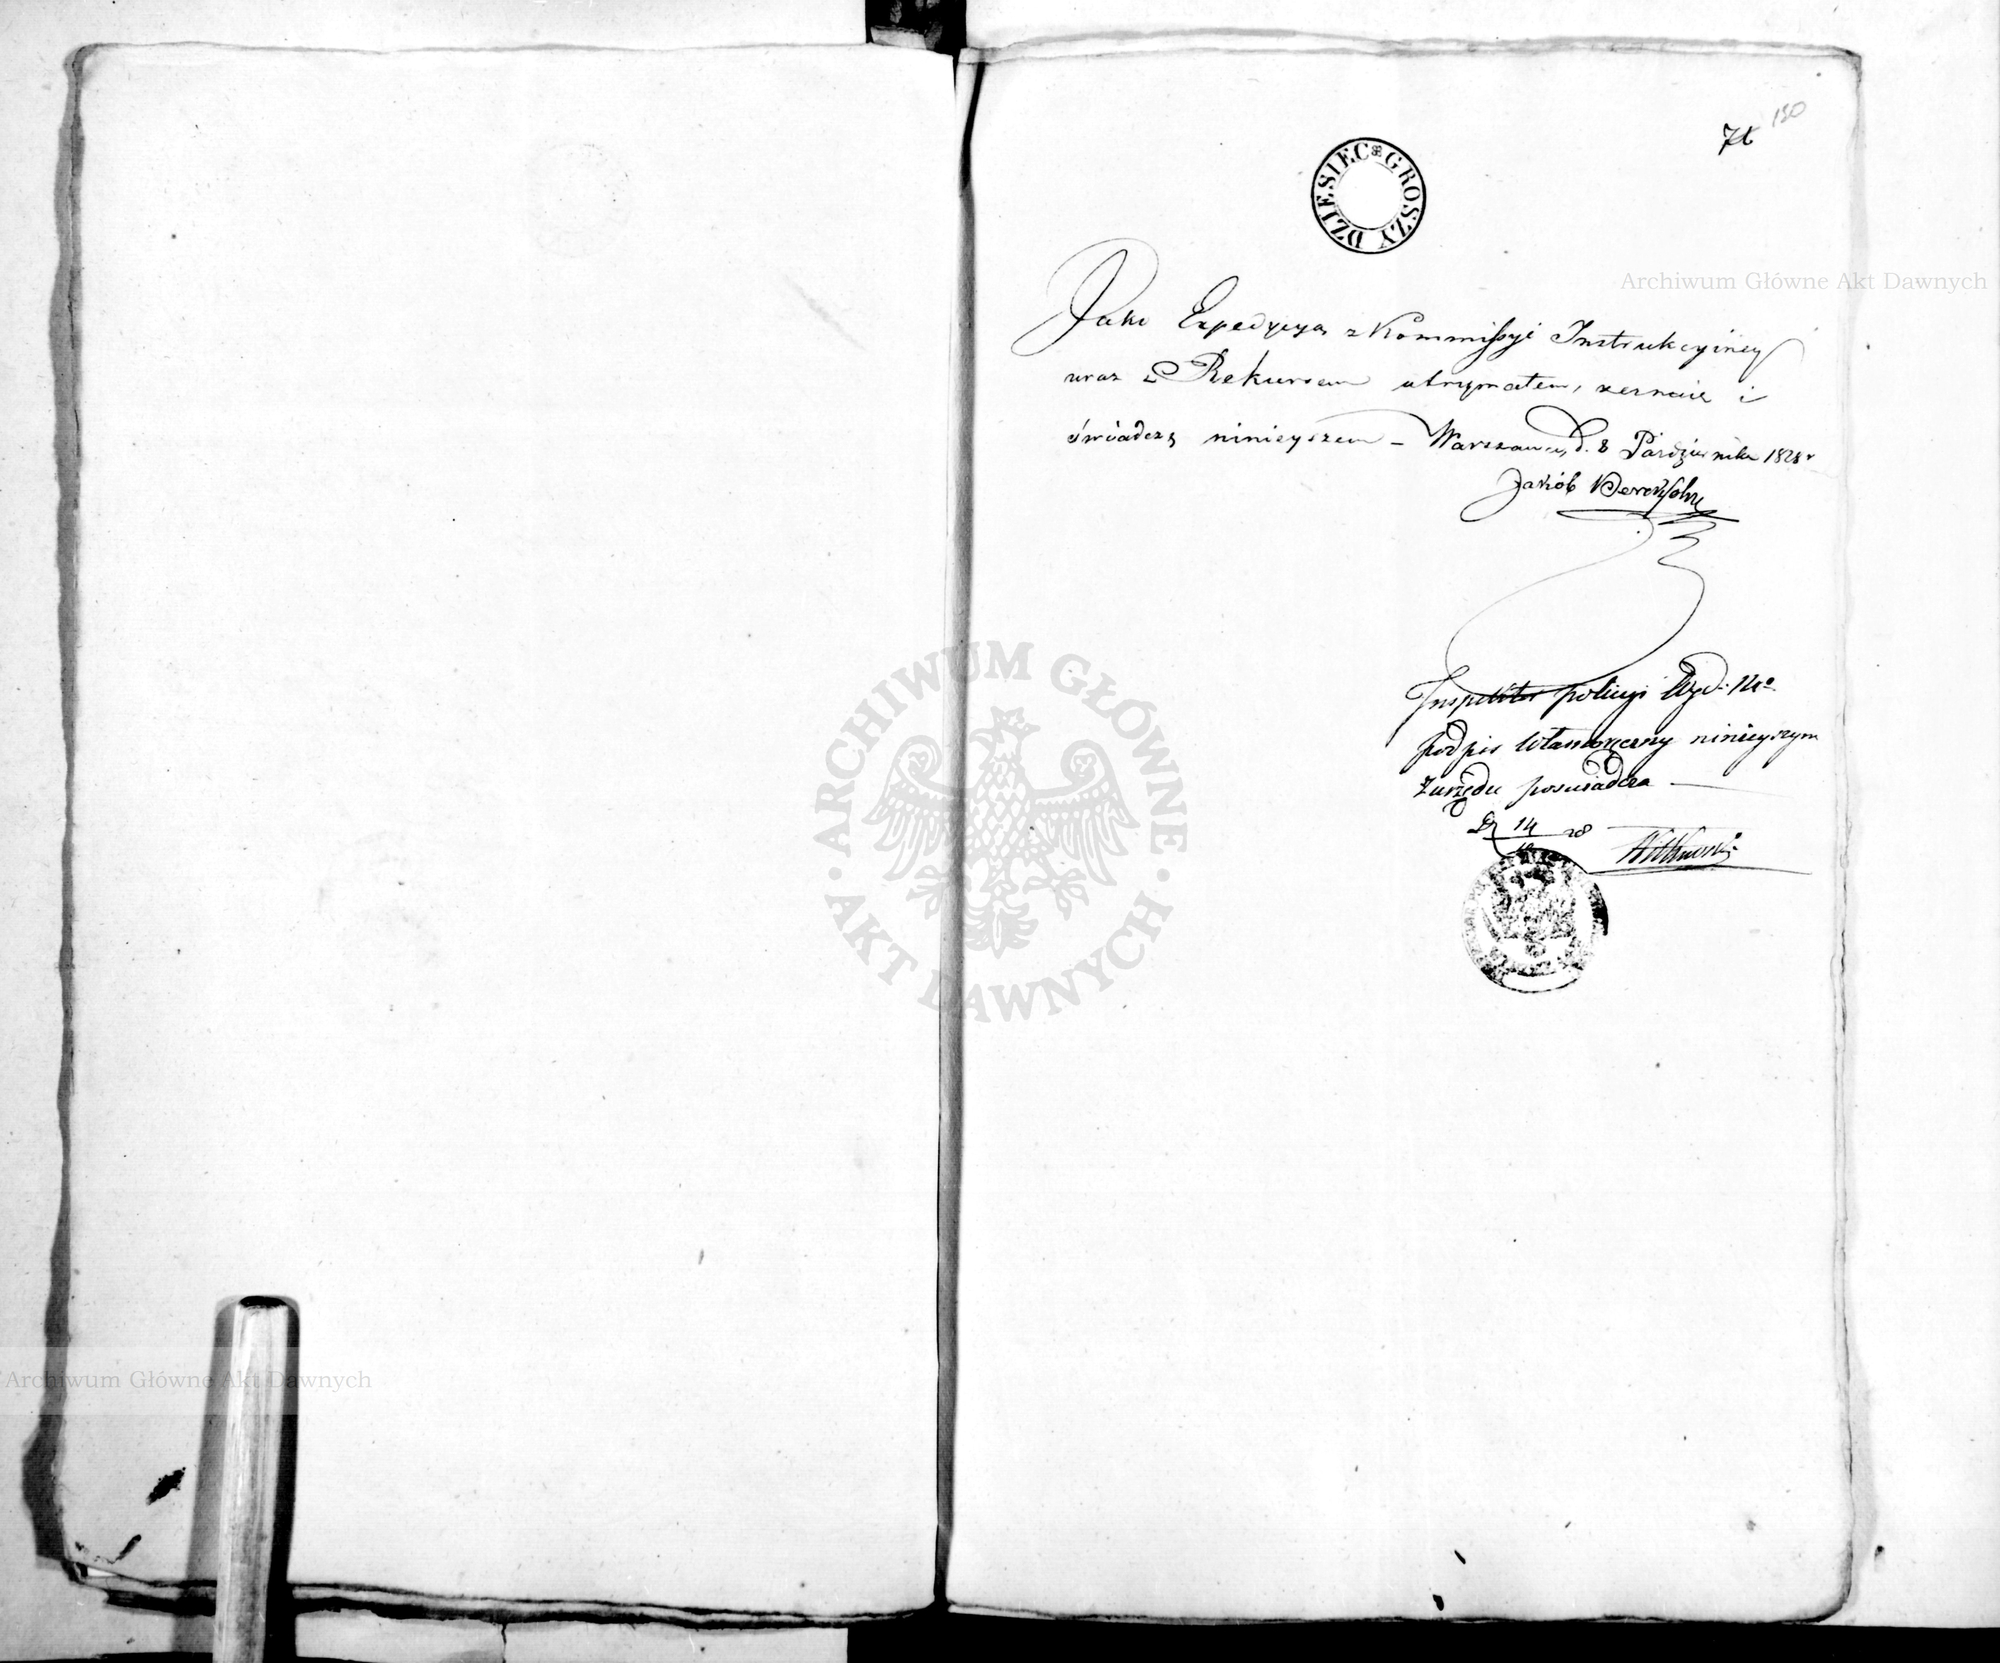 150
DZIESIEC GROSZY
Archiwum Główne Akt Dawnych
Jako Expedycya z Kommissyi Instrukcyiney
wraz z Rekursem utrzymałem, zeznaię i
świadczę ninieyszem – Warszawa, d. 8 Października 1828 r
Jakób
Inspektor policyi
podpis własnoręczny ninieyszym
Zurzędu poswiadcza —
14
ARCHIWUM GŁÓWNE AKT DAWNYCH
Archiwum Główne Akt Dawnych